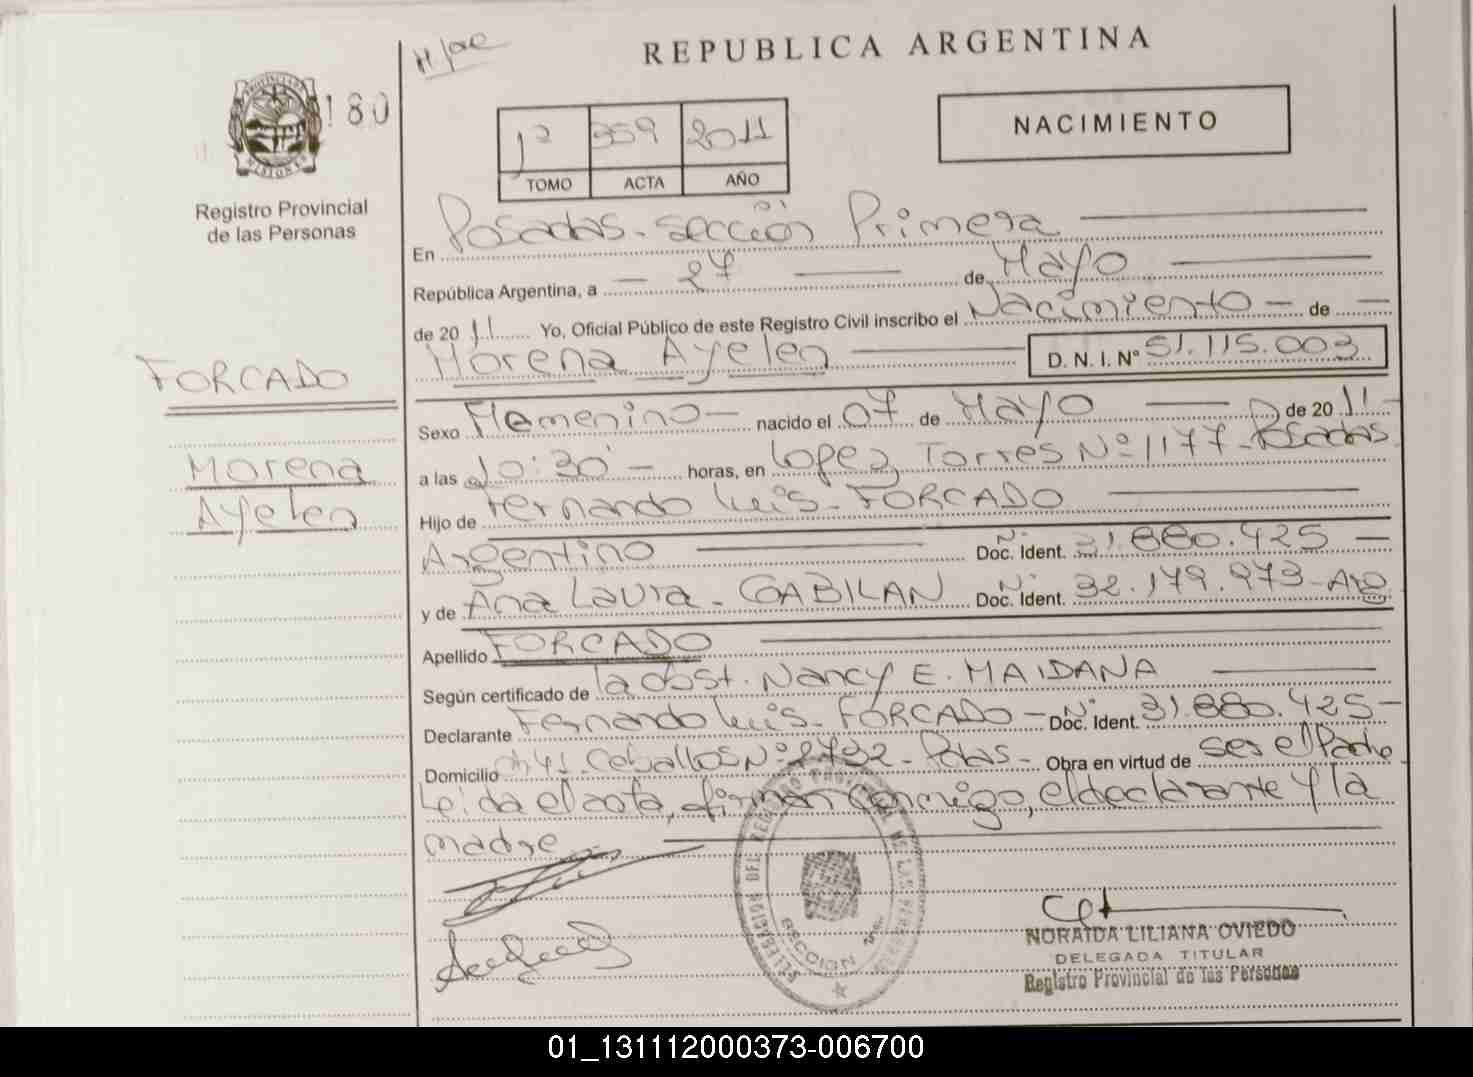 REPUBLICA ARGENTINA
180
1º 359 2011
TOMO ACTA AÑO
NACIMIENTO
Registro Provincial
de las Personas
En Posadas - Sección Primera
República Argentina, a 27 de Mayo
de 2011 Yo, Oficial Público de este Registro Civil inscribo el Nacimiento de
Morena Ayelen D. N. I. Nº 51.115.003
FORCADO
Morena
Ayelen
Sexo Femenino nacido el 07 de Mayo de 2011
a las 10:30 horas, en Lopez Torres Nº 1177 - Posadas
Hijo de Fernando Luis - FORCADO
Argentino Doc. Ident. Nº 31.880.425
y de Ana Laura - GABILAN Doc. Ident. Nº 32.179.973 - Arg
Apellido FORCADO
Según certificado de la Obst. Nancy E. MAIDANA
Declarante Fernando Luis - FORCADO - Doc. Ident. Nº 31.880.425
Domicilio Ceballos Nº 2792 - Pdas - Obra en virtud de ser el Padre
Leida el acta, firman conmigo, el declarante y la
madre
DELEGACION DEL REGISTRO PROVINCIAL DE LAS PERSONAS
SECCION 1ra.
NORAIDA LILIANA OVIEDO
DELEGADA TITULAR
Registro Provincial de las Personas
01_131112000373-006700